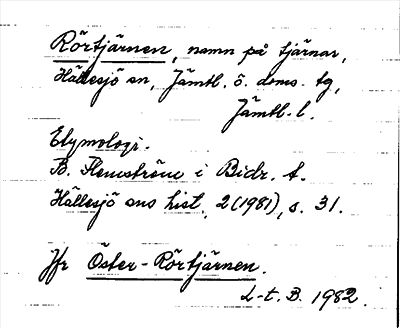 Rörtjärnen, namn på tjärnar,
Hällesjö sn, Jämtl. ö. doms. tg,
Jämtl. l.
Etymologi.
B. Flemström i Bidr. t.
Hällesjö sns hist., 2 (1981), s. 31.
Jfr Öster-Rörtjärnen.
L-t. B. 1982.